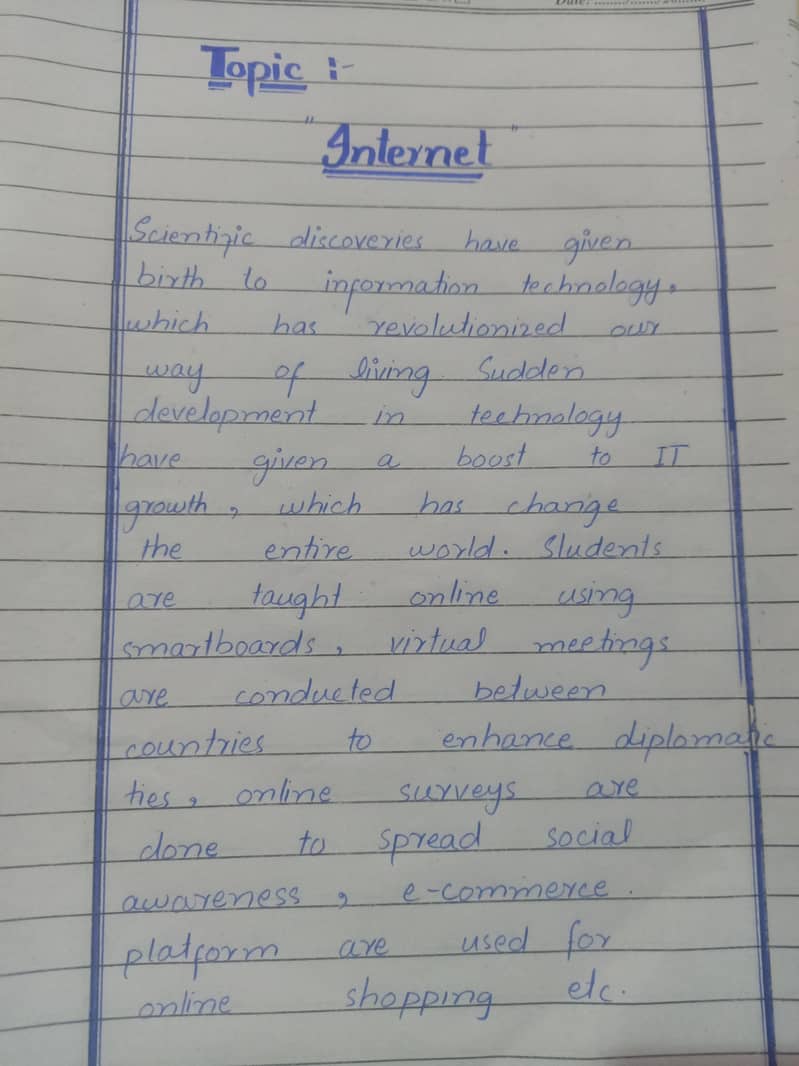 Date:
Topic :-
"Internet"
Scientific discoveries have given
birth to information technology.
which has revolutionized our
way of living. Sudden
development in technology
have given a boost to IT
growth, which has change
the entire world. Students
are taught online using
smartboards, virtual meetings
are conducted between
countries to enhance diplomatic
ties, online surveys are
done to spread social
awareness, e-commerce.
platform are used for
online shopping etc.